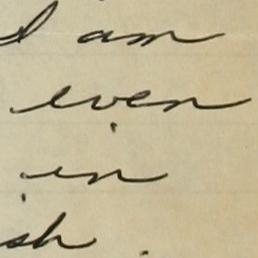 I am
even
in
sh.